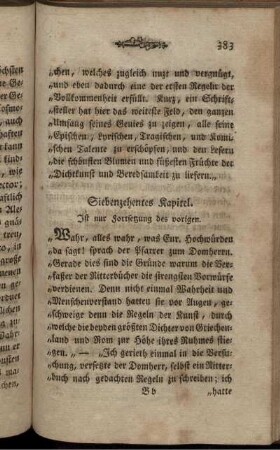 383
„chen, welches zugleich nuzt und vergnügt,
„und eben dadurch eine der ersten Regeln der
„Vollkommenheit erfüllt. Kurz, ein Schrift-
„steller hat hier das weiteste Feld, den ganzen
„Umfang seines Genies zu zeigen, alle seine
„Epischen, Lyrischen, Tragischen, und Komi-
„schen Talente zu erschöpfen, und den Lesern
„die schönsten Blumen und süßesten Früchte der
„Dichtkunst und Beredsamkeit zu liefern.„
Siebenzehentes Kapitel.
Ist nur Fortsetzung des vorigen.
„Wahr, alles wahr, was Eur. Hochwürden
„da sagt! sprach der Pfarrer zum Domherrn.
„Gerade dies sind die Gründe warum die Ver-
„fasser der Ritterbücher die strengsten Vorwürfe
„verdienen. Denn nicht einmal Wahrheit und
„Menschenverstand hatten sie vor Augen, ge-
„schweige denn die Regeln der Kunst, durch
„welche die beyden größten Dichter von Griechen-
„land und Rom zur Höhe ihres Ruhmes stie-
„gen. „ — „Ich gerieth einmal in die Versu-
„chung, versezte der Domherr, selbst ein Ritter-
„buch nach gedachten Regeln zu schreiben; ich
B b „hatte